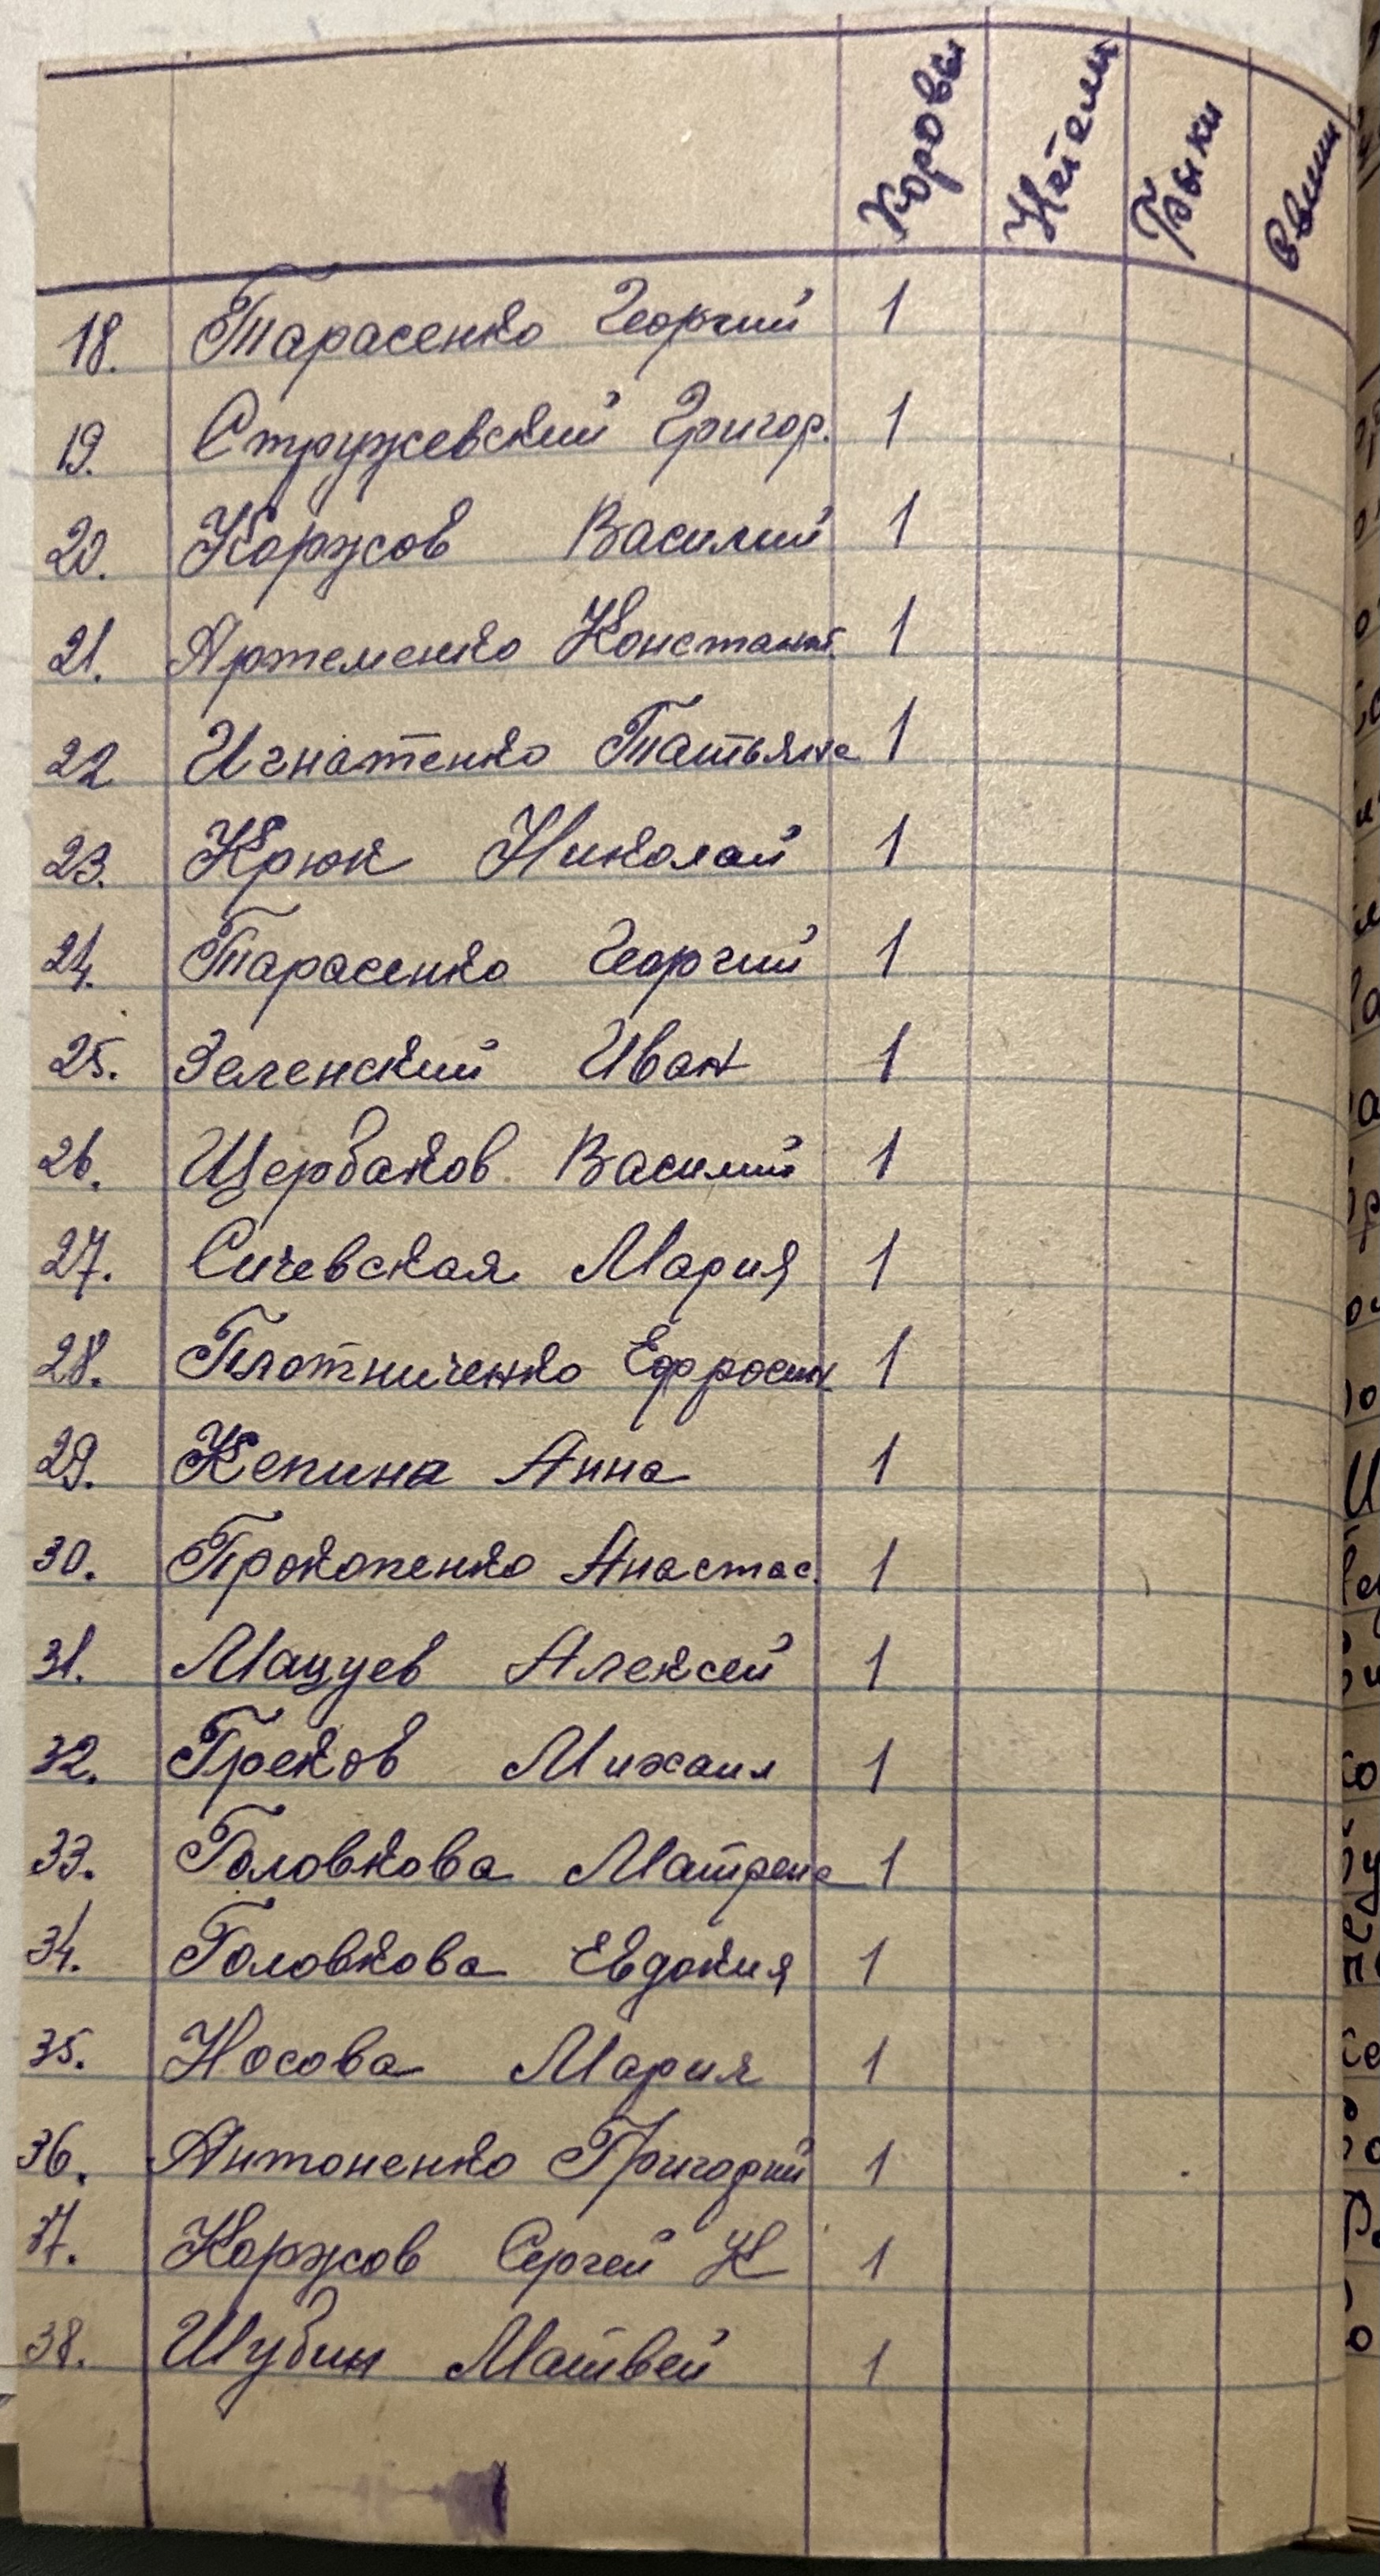 Коровы Нетели Быки Свиньи
18. Тарасенко Георгий 1
19. Стружевский Григор. 1
20. Коржов Василий 1
21. Артеменко Констант. 1
22 Игнатенко Татьяна 1
23. Крюк Николай 1
24. Тарасенко Георгий 1
25. Зеленский Иван 1
26. Щербаков Василий 1
27. Сичевская Мария 1
28. Плотниченко Ефросин 1
29. Кепина Анна 1
30. Прокопенко Анастас. 1
31. Мацуев Алексей 1
32. Греков Михаил 1
33. Головкова Матрена 1
34. Головкова Евдокия 1
35. Носова Мария 1
36. Антоненко Григорий 1
37. Коржов Сергей К 1
38. Шубин Матвей 1